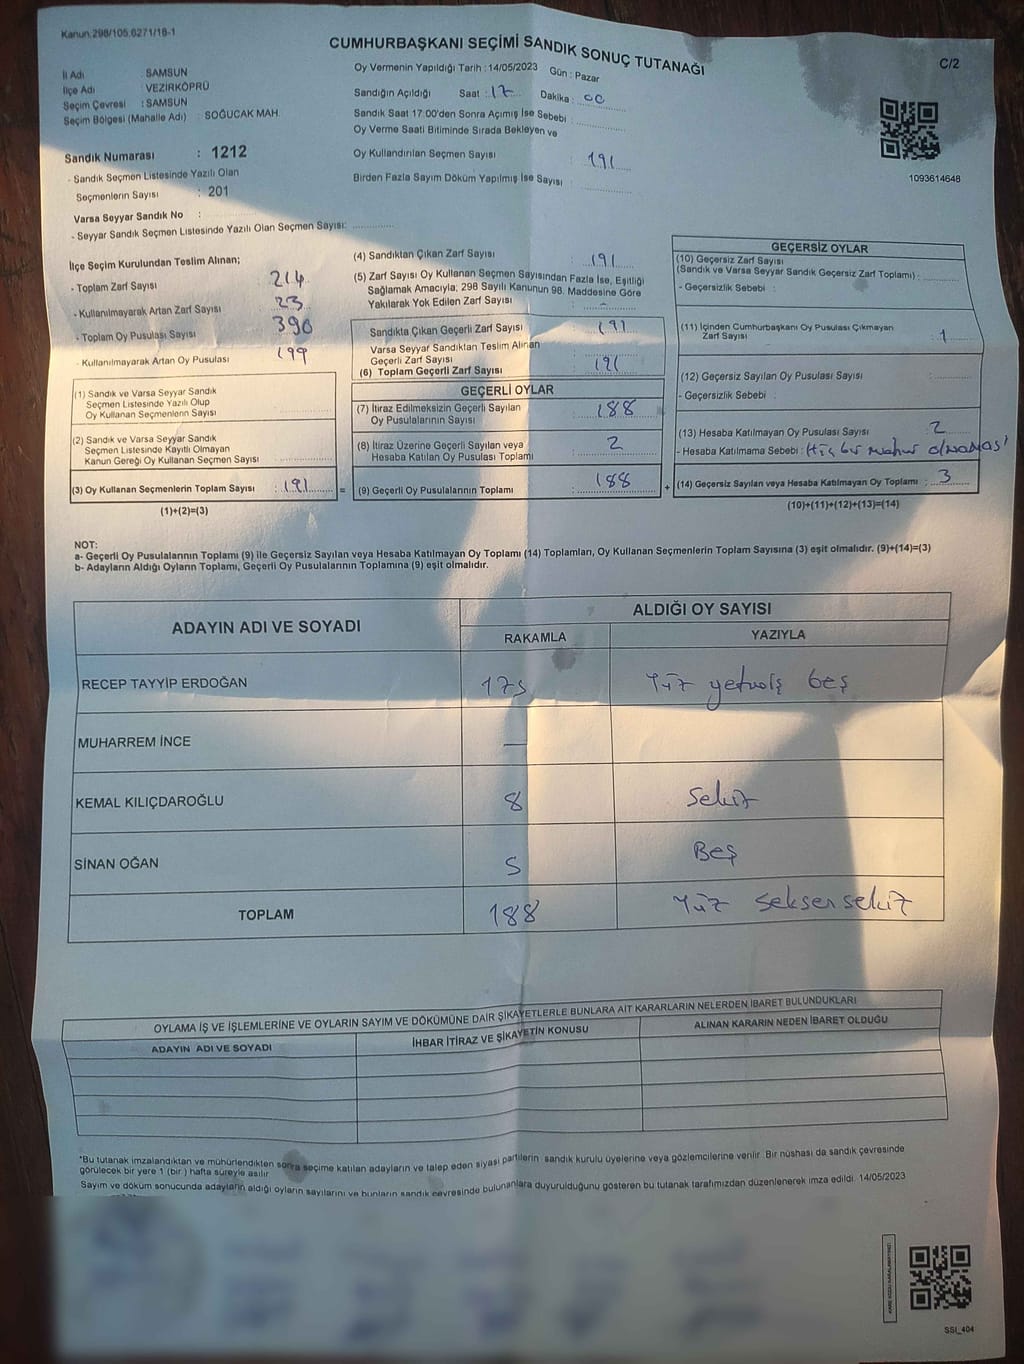 Kanun 298/105.6271/18-1
CUMHURBAŞKANI SEÇİMİ SANDIK SONUÇ TUTANAĞI
C/2
İl Adı : SAMSUN
İlçe Adı : VEZİRKÖPRÜ
Seçim Çevresi : SAMSUN
Seçim Bölgesi (Mahalle Adı) : SOĞUCAK MAH.
Oy Vermenin Yapıldığı Tarih : 14/05/2023 Gün : Pazar
Sandığın Açıldığı Saat : 17 Dakika : 00
Sandık Saat 17:00'den Sonra Açımış İse Sebebi :
Oy Verme Saati Bitiminde Sırada Bekleyen ve
Oy Kullandırılan Seçmen Sayısı : 191
Birden Fazla Sayım Döküm Yapılmış İse Sayısı :
1093614648
Sandık Numarası : 1212
- Sandık Seçmen Listesinde Yazılı Olan
Seçmenlerin Sayısı : 201
Varsa Seyyar Sandık No :
- Seyyar Sandık Seçmen Listesinde Yazılı Olan Seçmen Sayısı:
İlçe Seçim Kurulundan Teslim Alınan;
- Toplam Zarf Sayısı : 214
- Kullanılmayarak Artan Zarf Sayısı : 23
- Toplam Oy Pusulası Sayısı : 390
- Kullanılmayarak Artan Oy Pusulası : 199
(1) Sandık ve Varsa Seyyar Sandık
Seçmen Listesinde Yazılı Olup
Oy Kullanan Seçmenlerin Sayısı :
(2) Sandık ve Varsa Seyyar Sandık
Seçmen Listesinde Kayıtlı Olmayan
Kanun Gereği Oy Kullanan Seçmen Sayısı :
(3) Oy Kullanan Seçmenlerin Toplam Sayısı : 191 =
(1)+(2)=(3)
(4) Sandıktan Çıkan Zarf Sayısı : 191
(5) Zarf Sayısı Oy Kullanan Seçmen Sayısından Fazla İse, Eşitliği
Sağlamak Amacıyla; 298 Sayılı Kanunun 98. Maddesine Göre
Yakılarak Yok Edilen Zarf Sayısı : -
Sandıkta Çıkan Geçerli Zarf Sayısı : 191
Varsa Seyyar Sandıktan Teslim Alınan
Geçerli Zarf Sayısı :
(6) Toplam Geçerli Zarf Sayısı : 191
GEÇERLİ OYLAR
(7) İtiraz Edilmeksizin Geçerli Sayılan
Oy Pusulalarının Sayısı : 188
(8) İtiraz Üzerine Geçerli Sayılan veya
Hesaba Katılan Oy Pusulası Toplamı : 2
(9) Geçerli Oy Pusulalarının Toplamı : 188 +
GEÇERSİZ OYLAR
(10) Geçersiz Zarf Sayısı
(Sandık ve Varsa Seyyar Sandık Geçersiz Zarf Toplamı) :
- Geçersizlik Sebebi :
(11) İçinden Cumhurbaşkanı Oy Pusulası Çıkmayan
Zarf Sayısı : 1
(12) Geçersiz Sayılan Oy Pusulası Sayısı :
- Geçersizlik Sebebi :
(13) Hesaba Katılmayan Oy Pusulası Sayısı : 2
- Hesaba Katılmama Sebebi : Hiç bir mühür olmaması
(14) Geçersiz Sayılan veya Hesaba Katılmayan Oy Toplamı : 3
(10)+(11)+(12)+(13)=(14)
NOT:
a- Geçerli Oy Pusulalarının Toplamı (9) ile Geçersiz Sayılan veya Hesaba Katılmayan Oy Toplamı (14) Toplamları, Oy Kullanan Seçmenlerin Toplam Sayısına (3) eşit olmalıdır. (9)+(14)=(3)
b- Adayların Aldığı Oyların Toplamı, Geçerli Oy Pusulalarının Toplamına (9) eşit olmalıdır.
ADAYIN ADI VE SOYADI ALDIĞI OY SAYISI
RAKAMLA YAZIYLA
RECEP TAYYİP ERDOĞAN 175 Yüz yetmiş beş
MUHARREM İNCE —
KEMAL KILIÇDAROĞLU 8 Sekiz
SİNAN OĞAN 5 Beş
TOPLAM 188 Yüz seksen sekiz
OYLAMA İŞ VE İŞLEMLERİNE VE OYLARIN SAYIM VE DÖKÜMÜNE DAİR ŞİKAYETLERLE BUNLARA AİT KARARLARIN NELERDEN İBARET BULUNDUKLARI
ADAYIN ADI VE SOYADI İHBAR İTİRAZ VE ŞİKAYETİN KONUSU ALINAN KARARIN NEDEN İBARET OLDUĞU
*Bu tutanak imzalandıktan ve mühürlendikten sonra seçime katılan adayların ve talep eden siyasi partilerin sandık kurulu üyelerine veya gözlemcilerine verilir. Bir nüshası da sandık çevresinde
görülecek bir yere 1 (bir) hafta süreyle asılır.
Sayım ve döküm sonucunda adayların aldığı oyların sayılarını ve bunların sandık çevresinde bulunanlara duyurulduğunu gösteren bu tutanak tarafımızdan düzenlenerek imza edildi. 14/05/2023
SSI_404